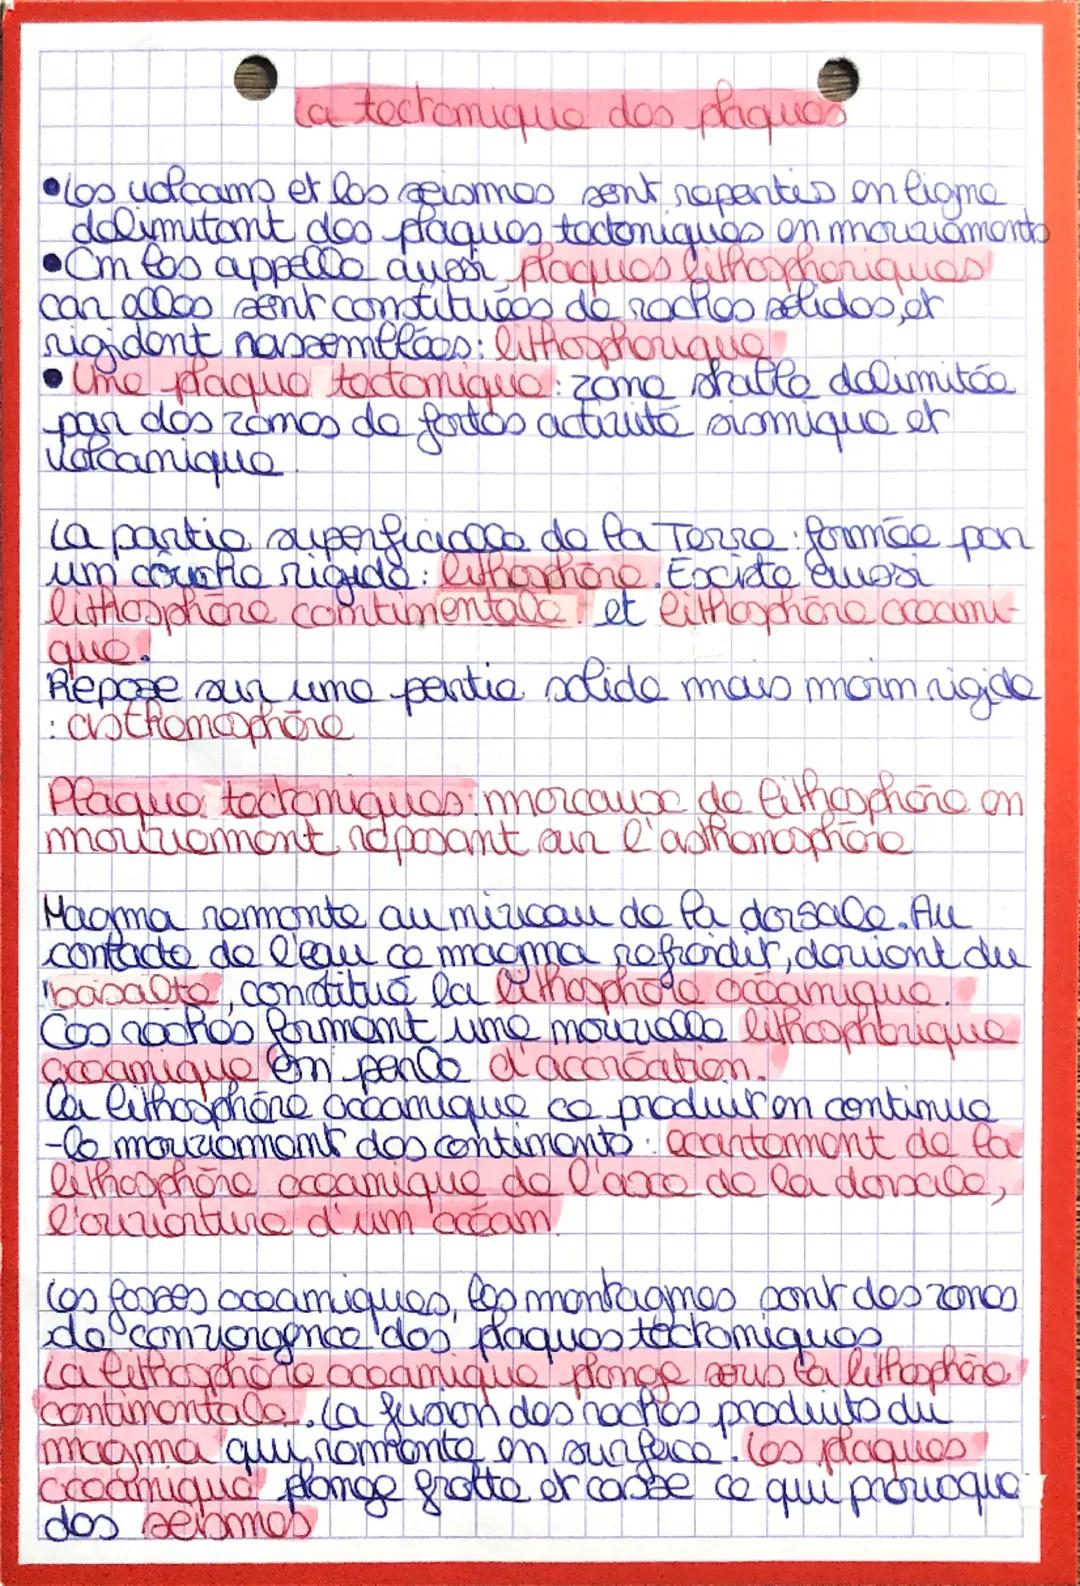 La tectonique des plaques
• Les volcans et les seismes sont repartis en ligne
delimitant des plaques tectoniques en mouvements
• On les appelle aussi plaques lithospheriques
car elles sont constituées de roches solides, et
rigident rassemblées : lithospherique
• Une plaque tectonique : zone stable delimitée
par des zones de fortes activité sismique et
volcanique
La partie superficielle de la Terre : formée par
un couche rigide : lithosphère. Existe aussi
lithosphère continentale. et lithosphère oceani-
que.
Repose sur une partie solide mais moin rigide
: asthenosphère
Plaque tectoniques : morceaux de lithosphère en
mouvement reposant sur l'asthenosphère
Magma remonte au niveau de la dorsale. Au
contacte de l'eau ce magma refroidit, devient du
basalte, constitué la lithosphère océanique.
Ces roches forment une nouvelle lithospherique
oceanique On parle d'accréation.
La lithosphère océanique ce produit en continue
- le mouvement des continents : ecartement de la
lithosphère oceanique de l'axe de la dorsale,
l'ouverture d'un océan
Les fosses oceaniques, les montagnes sont des zones
de convergence des plaques tectoniques
La lithosphère oceanique plonge sous la lithosphère
continentale. La fusion des roches produits du
magma qui remonte en surface. Les plaques
oceanique plonge frotte et casse ce qui provoque
des seismes